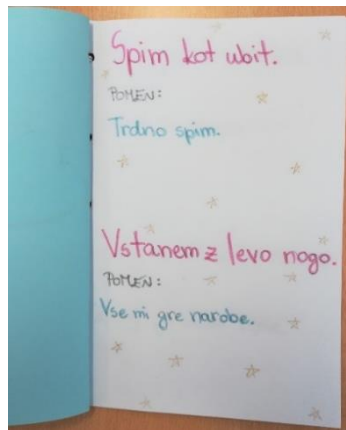 Spim kot ubit.
POMEN:
Trdno spim.
Vstanem z levo nogo.
POMEN:
Vse mi gre narobe.